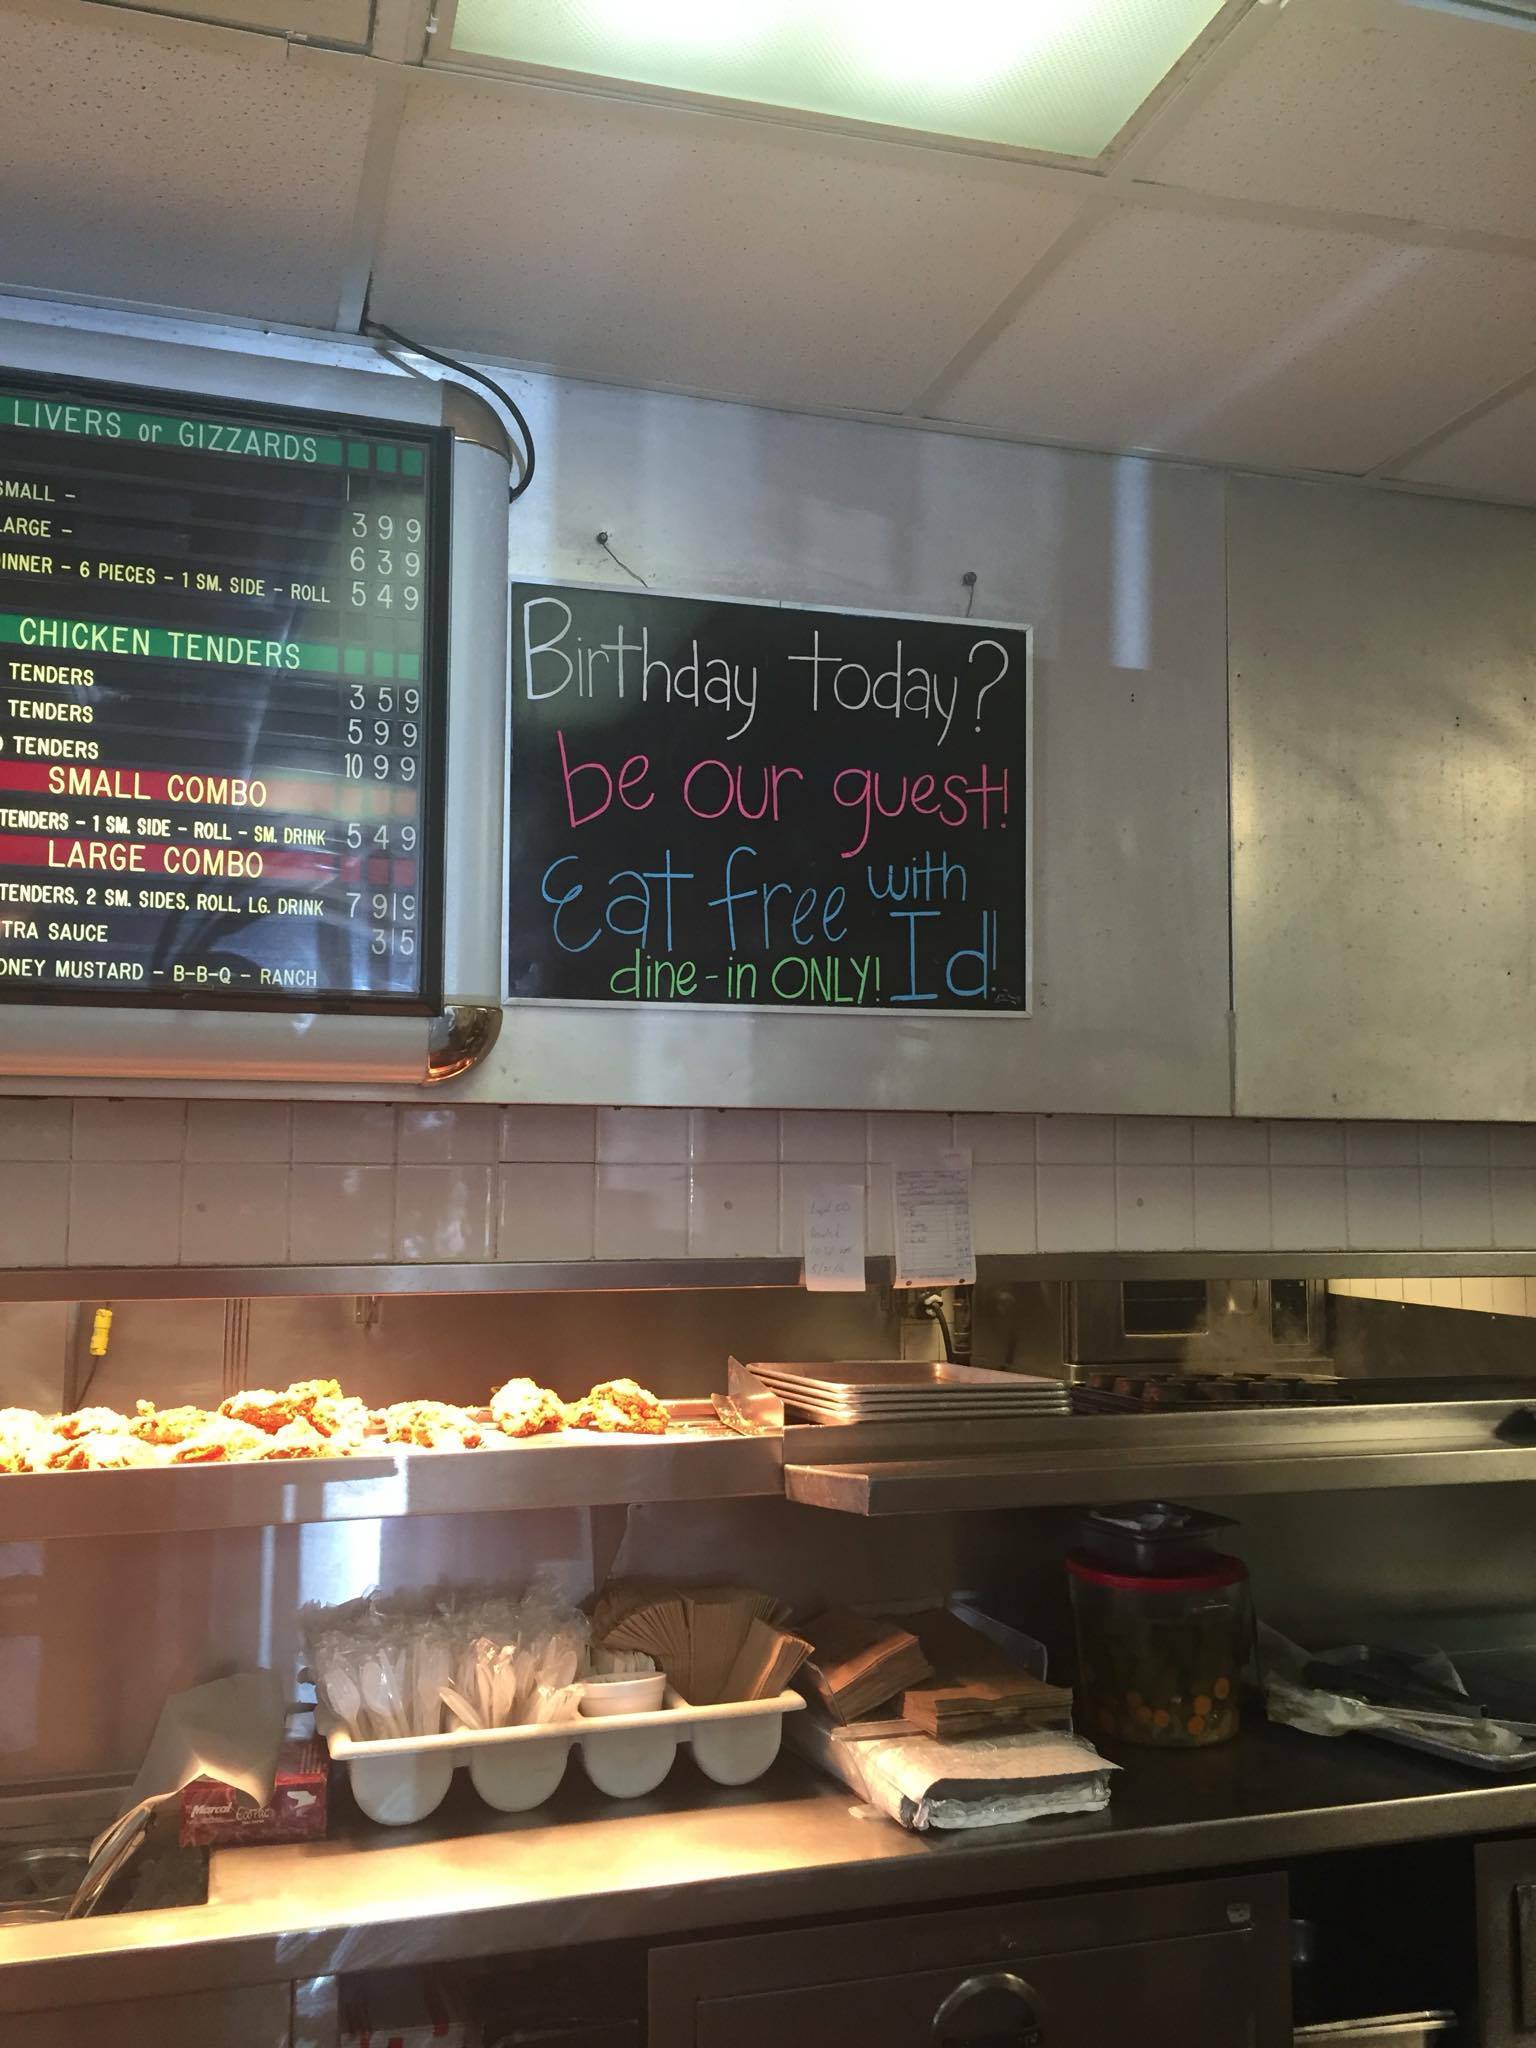 LIVERS or GIZZARDS
SMALL - 3 9 9
LARGE - 6 3 9
DINNER - 6 PIECES - 1 SM. SIDE - ROLL 5 4 9
CHICKEN TENDERS
TENDERS 3 5 9
TENDERS 5 9 9
TENDERS 10 9 9
SMALL COMBO
TENDERS - 1 SM. SIDE - ROLL - SM. DRINK 5 4 9
LARGE COMBO
TENDERS, 2 SM. SIDES, ROLL, LG. DRINK 7 9 9
TRA SAUCE 3 5
ONEY MUSTARD - B-B-Q - RANCH
Birthday today?
be our guest!
Eat free with Id!
dine-in ONLY!
Marcal